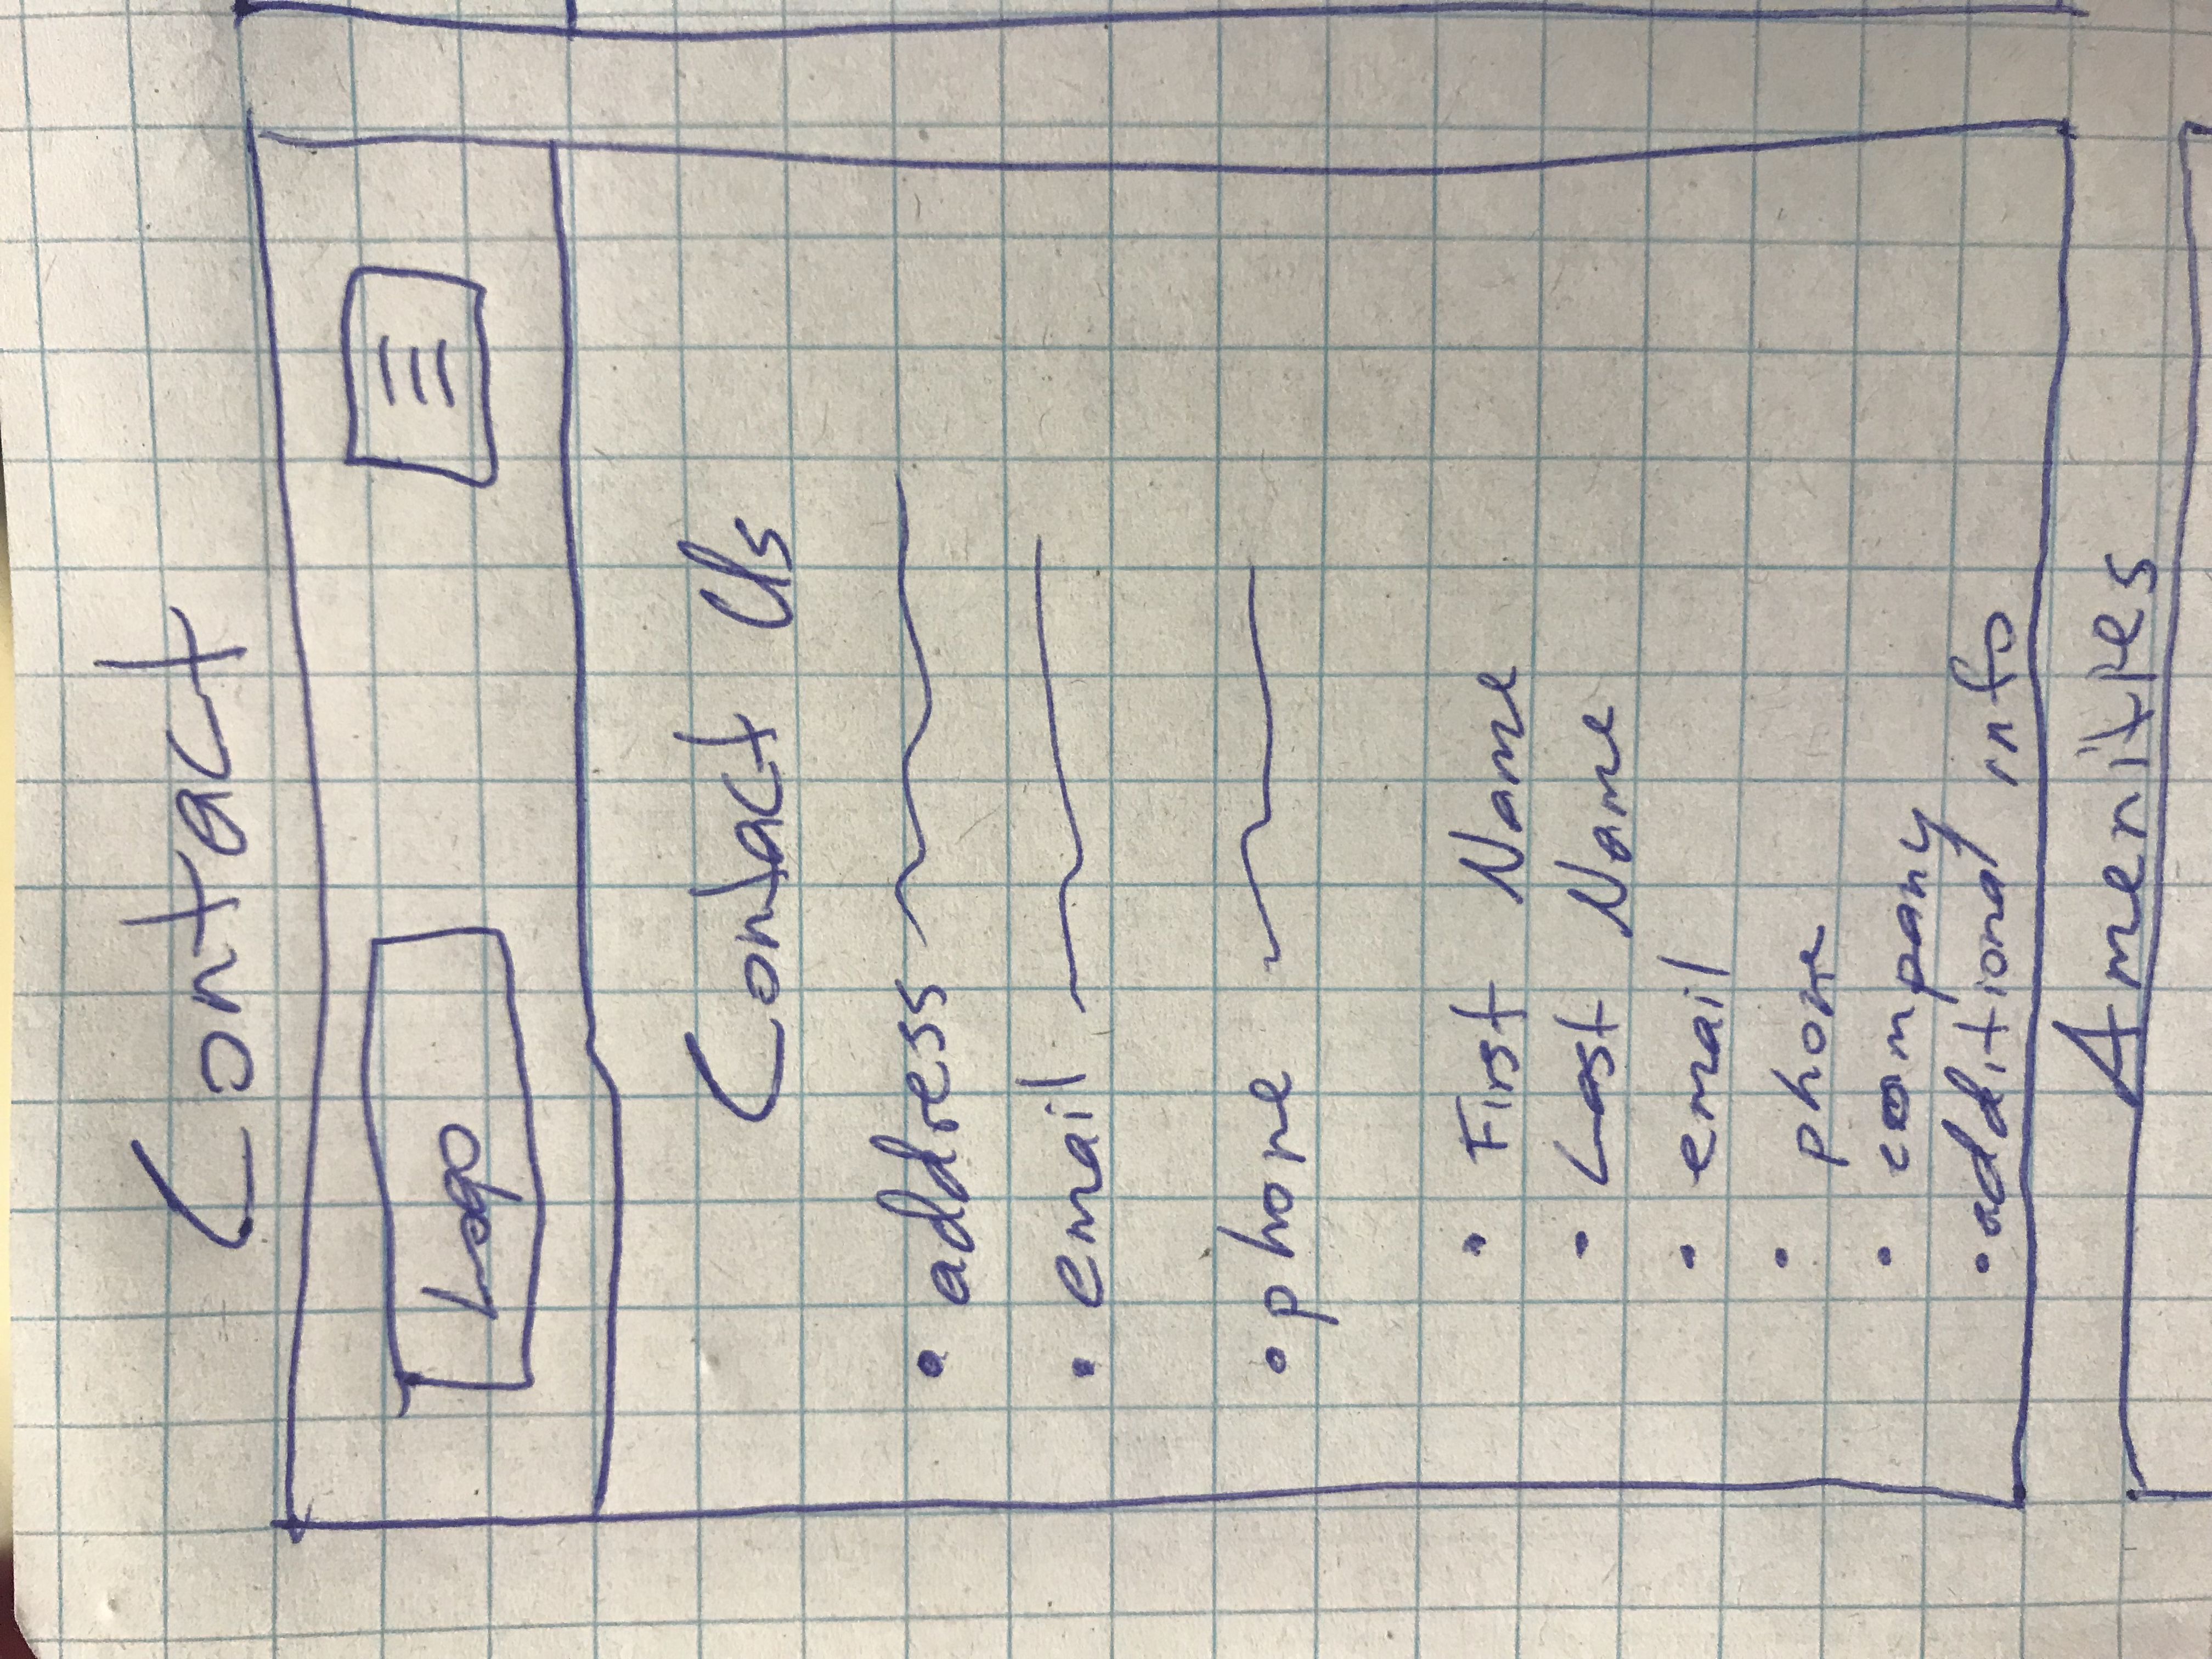 Contact
Logo
Contact Us
• address
• email
• phone
• First Name
• Last Name
• email
• phone
• company
• additional info
Amenities